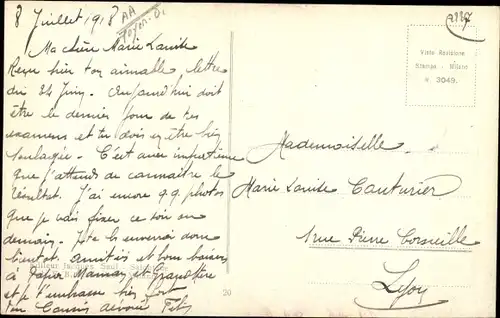 8 Juillet 1918
Ma chère Marie Louise
Reçu hier ton aimable lettre
du 24 Juin. Aujourd'hui doit
être le dernier jour de tes
examens et tu dois en être bien
soulagée. C'est avec impatience
que j'attends de connaître le
résultat. J'ai encore qq. photos
que je vais fixer ce soir ou
demain. Je te les enverrai donc
bientôt. Amitiés et bons baisers
à Papa Maman et Grand-Père
et je t'embrasse bien fort
ton Cousin dévoué
AA
2987
Visto Revisione
Stampa - Milano
N. 3049.
Mademoiselle
Marie Louise Couturier
1 rue Pierre Corneille
Lyon
20